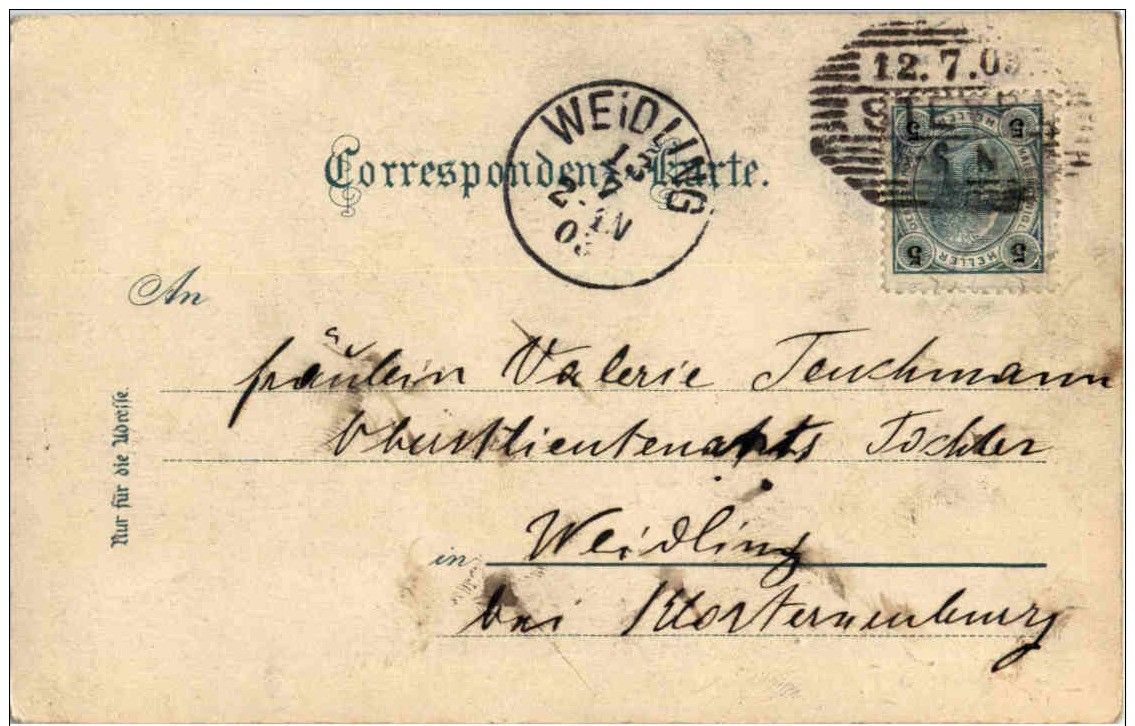 12.7.03
WEiDLING
13 7
2-N
03
Correspondenz-Karte.
5 5
5 HELLER 5
An
Fräulein Valerie Teuchmann
Oberstlieutenants Tochter
in Weidling
bei Klosterneuburg
Nur für die Adresse.